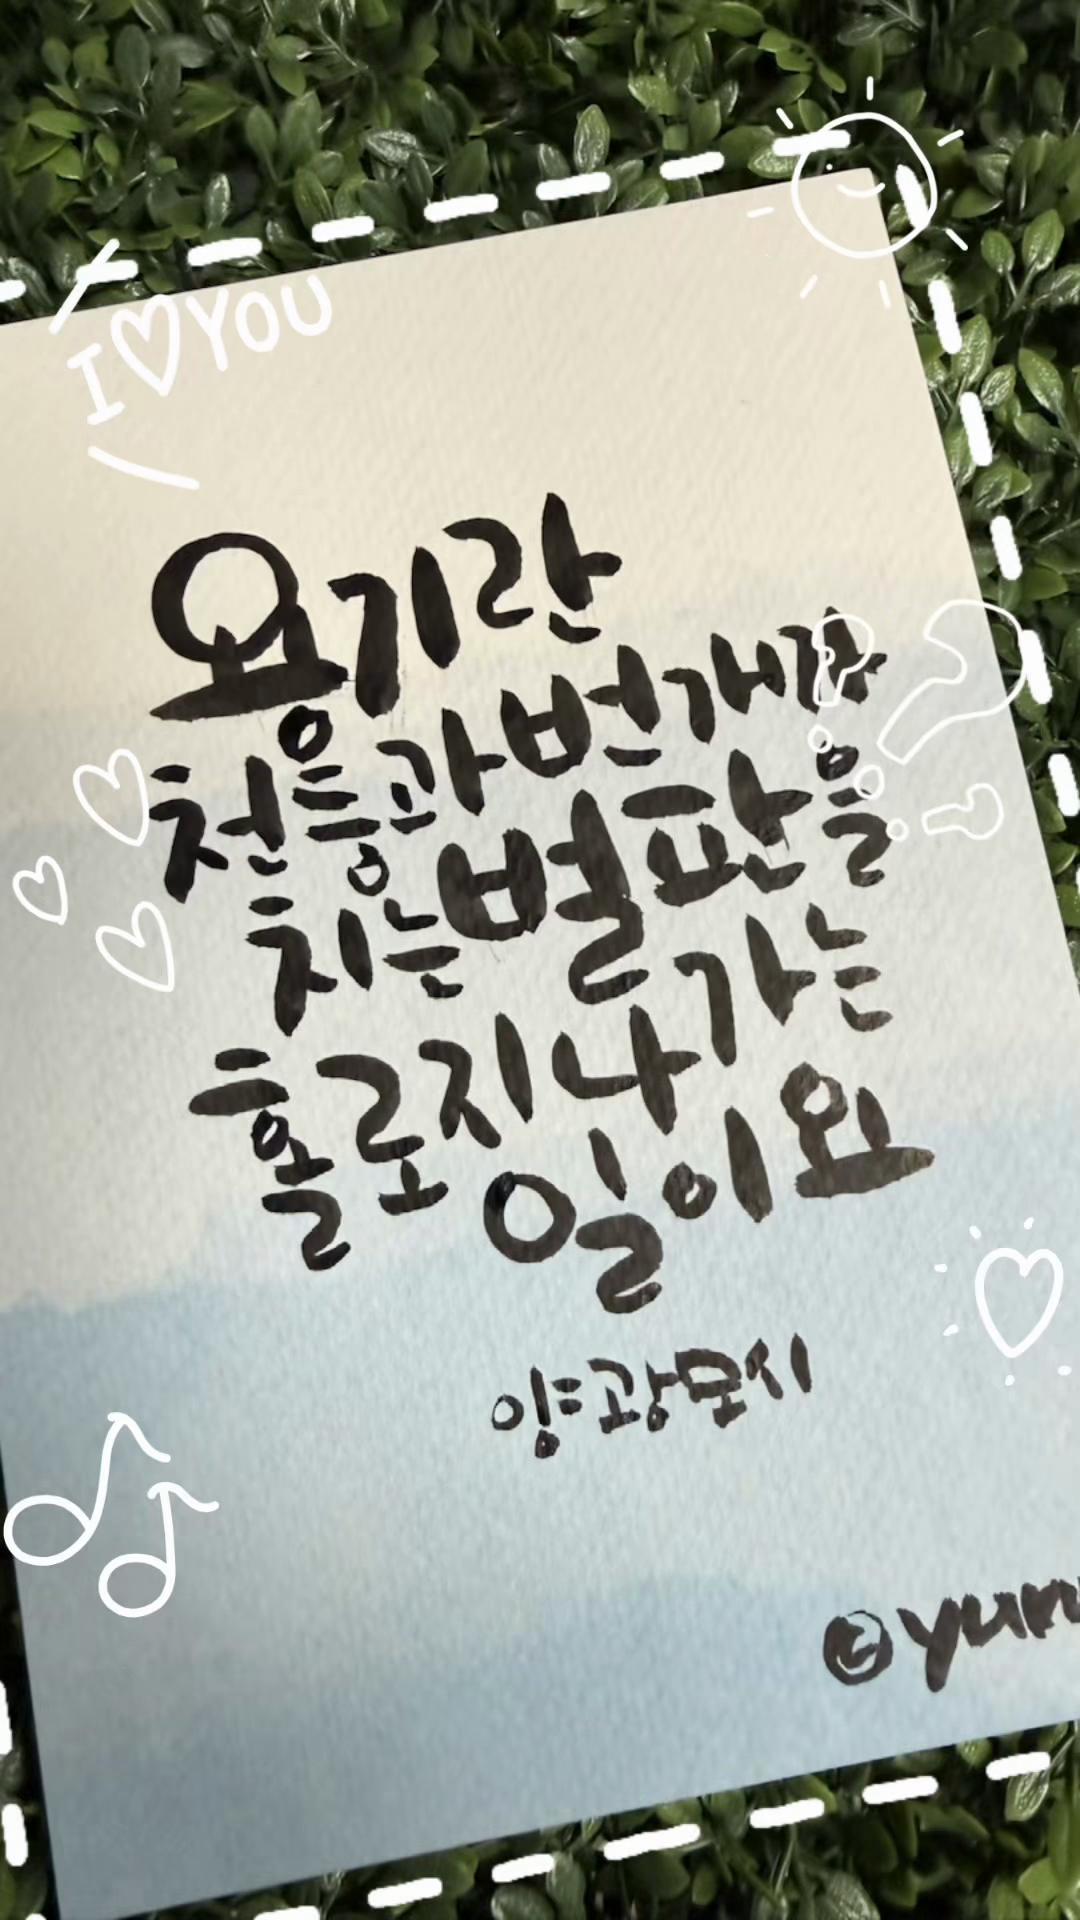 I♡YOU
요기란
천등과 번개가
치는 벌판을
홀로 지나가는
일이요
양광모 시
©yum